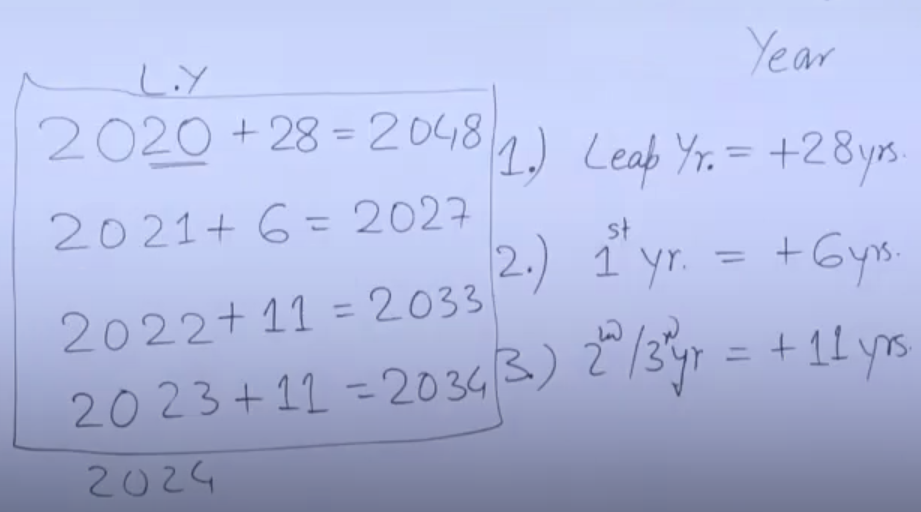 L.Y
2020 + 28 = 2048
2021 + 6 = 2027
2022 + 11 = 2033
2023 + 11 = 2034
2024
Year
1.) Leap Yr. = +28 yrs.
2.) 1st yr. = +6 yrs.
3.) 2nd/3rd yr = +11 yrs.